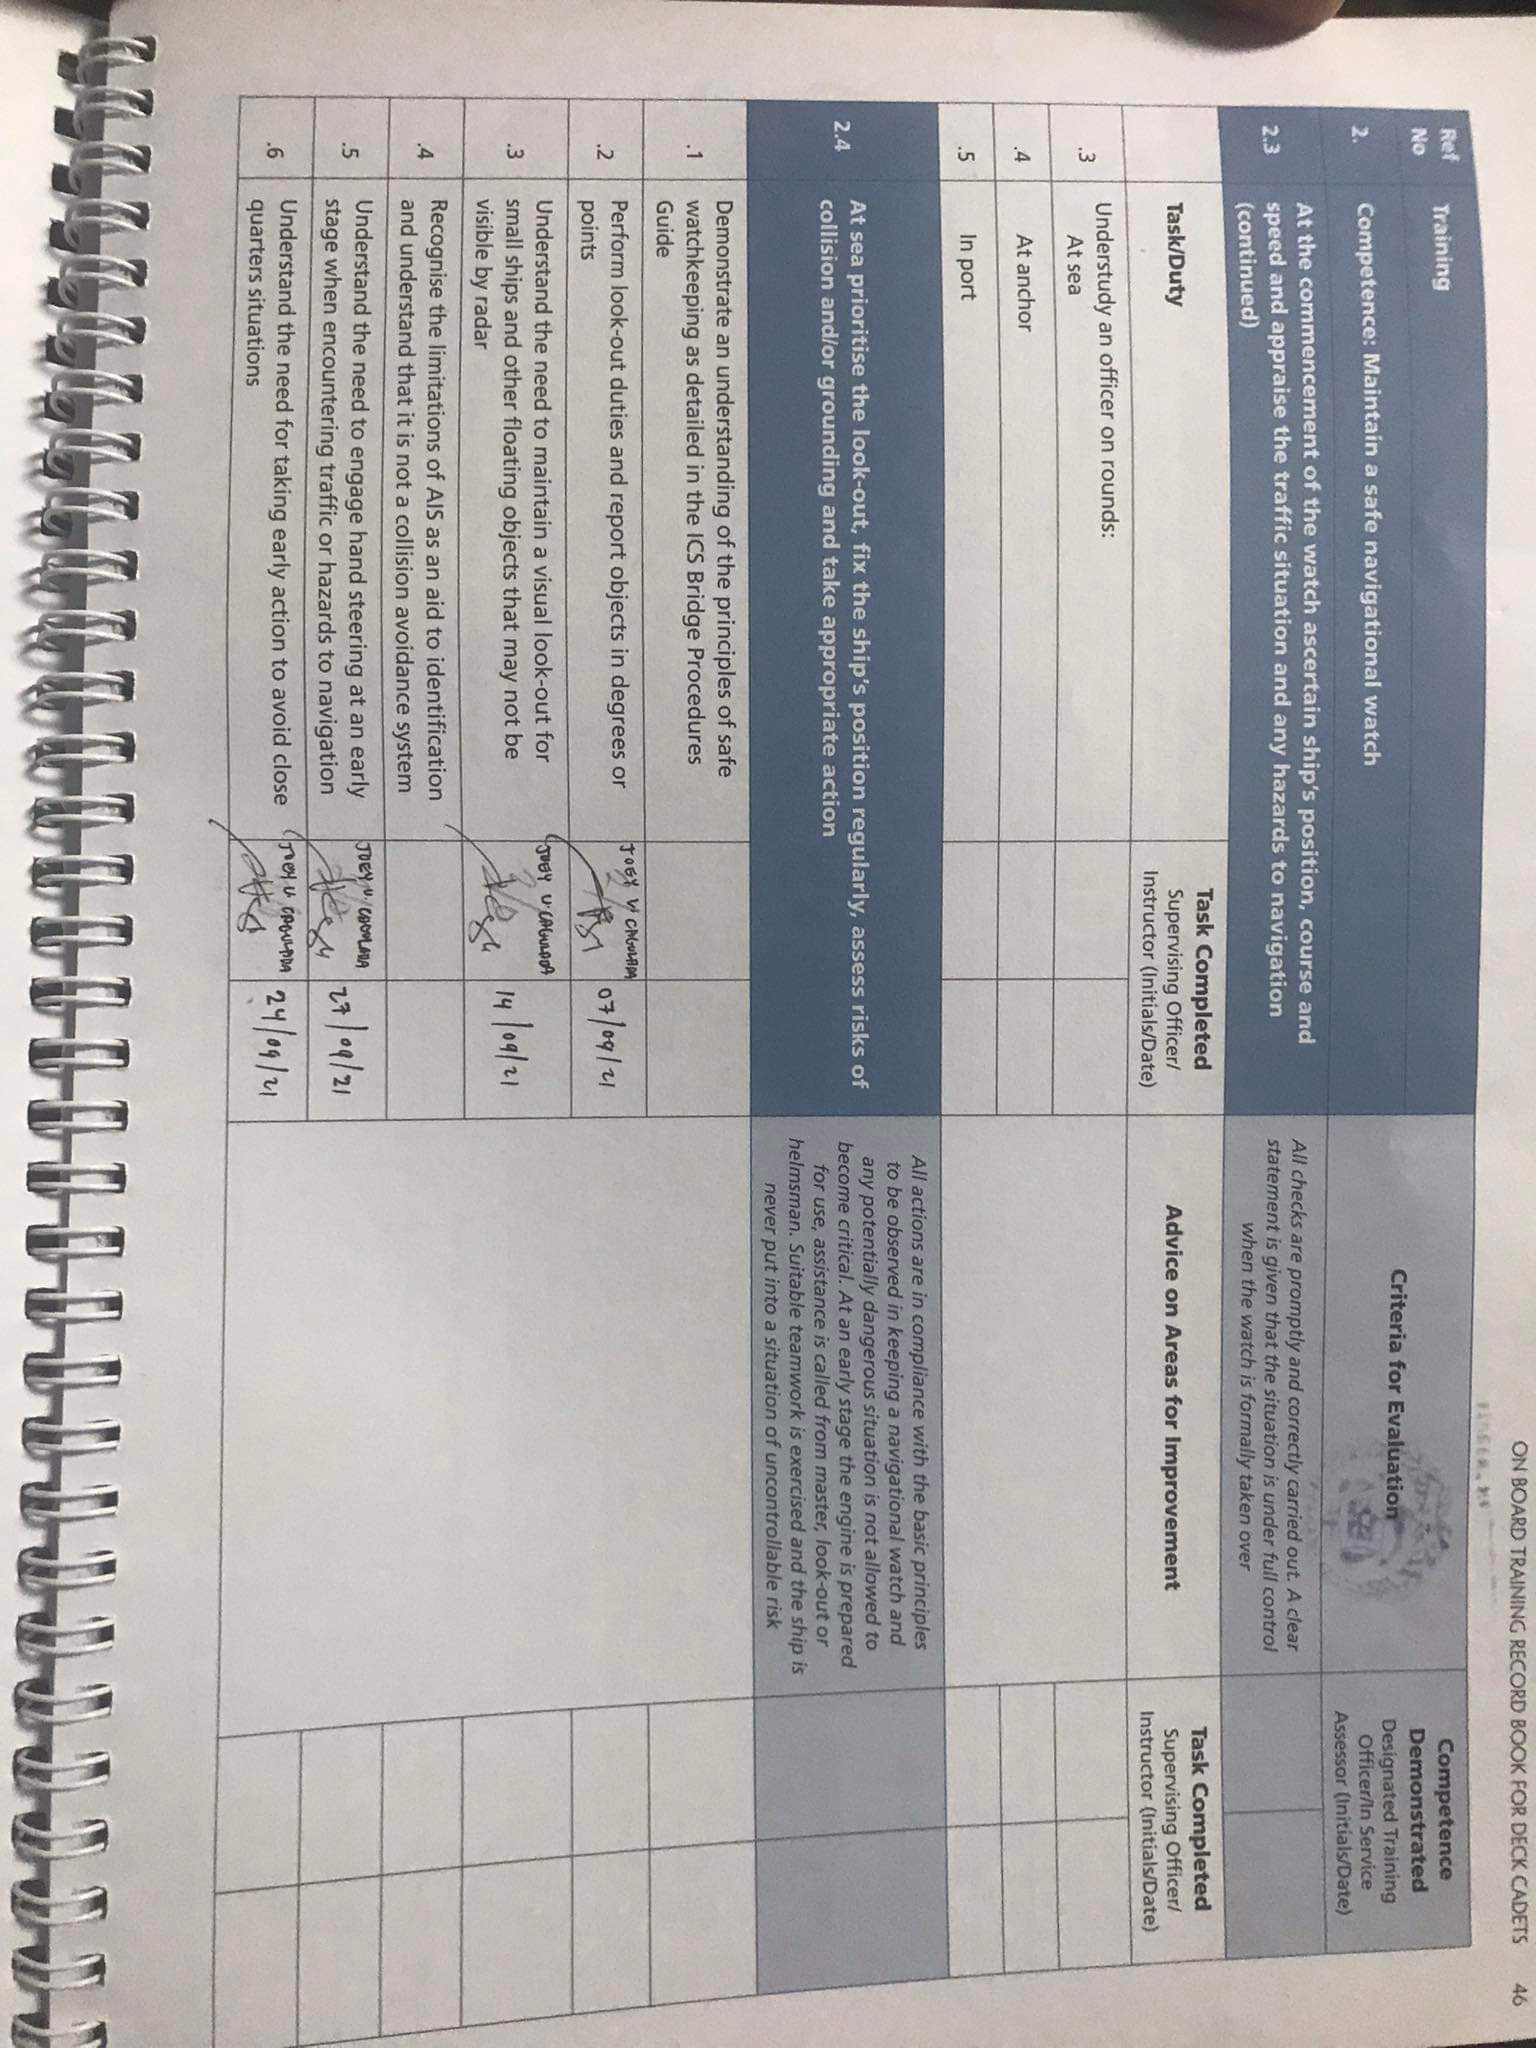 ON BOARD TRAINING RECORD BOOK FOR DECK CADETS 46
Ref
No
Training
Criteria for Evaluation
Competence
Demonstrated
Designated Training
Officer/In Service
Assessor (Initials/Date)
2. Competence: Maintain a safe navigational watch
2.3 At the commencement of the watch ascertain ship's position, course and
speed and appraise the traffic situation and any hazards to navigation
(continued)
All checks are promptly and correctly carried out. A clear
statement is given that the situation is under full control
when the watch is formally taken over
Task/Duty
Task Completed
Supervising Officer/
Instructor (Initials/Date)
Advice on Areas for Improvement
Task Completed
Supervising Officer/
Instructor (Initials/Date)
Understudy an officer on rounds:
.3 At sea
.4 At anchor
.5 In port
2.4 At sea prioritise the look-out, fix the ship's position regularly, assess risks of
collision and/or grounding and take appropriate action
All actions are in compliance with the basic principles
to be observed in keeping a navigational watch and
any potentially dangerous situation is not allowed to
become critical. At an early stage the engine is prepared
for use, assistance is called from master, look-out or
helmsman. Suitable teamwork is exercised and the ship is
never put into a situation of uncontrollable risk
.1 Demonstrate an understanding of the principles of safe
watchkeeping as detailed in the ICS Bridge Procedures
Guide
.2 Perform look-out duties and report objects in degrees or
points
JOEY V CAGULADA
07/09/21
.3 Understand the need to maintain a visual look-out for
small ships and other floating objects that may not be
visible by radar
JOEY V. CAGULADA
14/09/21
.4 Recognise the limitations of AIS as an aid to identification
and understand that it is not a collision avoidance system
.5 Understand the need to engage hand steering at an early
stage when encountering traffic or hazards to navigation
JOEY V. CAGULADA
27/09/21
.6 Understand the need for taking early action to avoid close
quarters situations
JOEY V CAGULADA
24/09/21